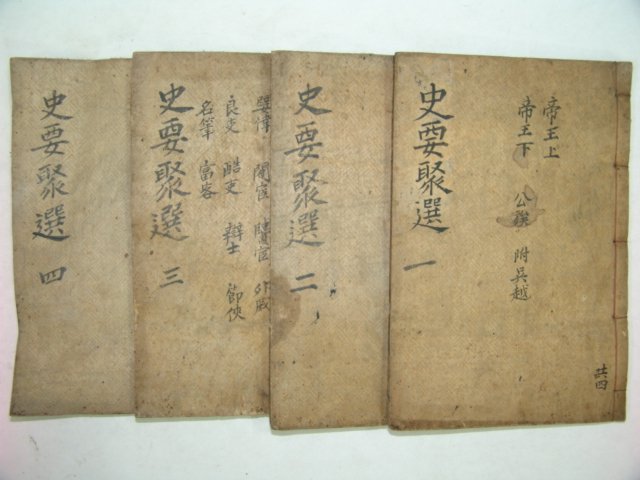 帝王上
帝王下 公侯 附吳越
史要聚選 一
共四
史要聚選 二
閹宦 外戚
良吏 酷吏 辯士 節俠
名筆 富客
史要聚選 三
史要聚選 四